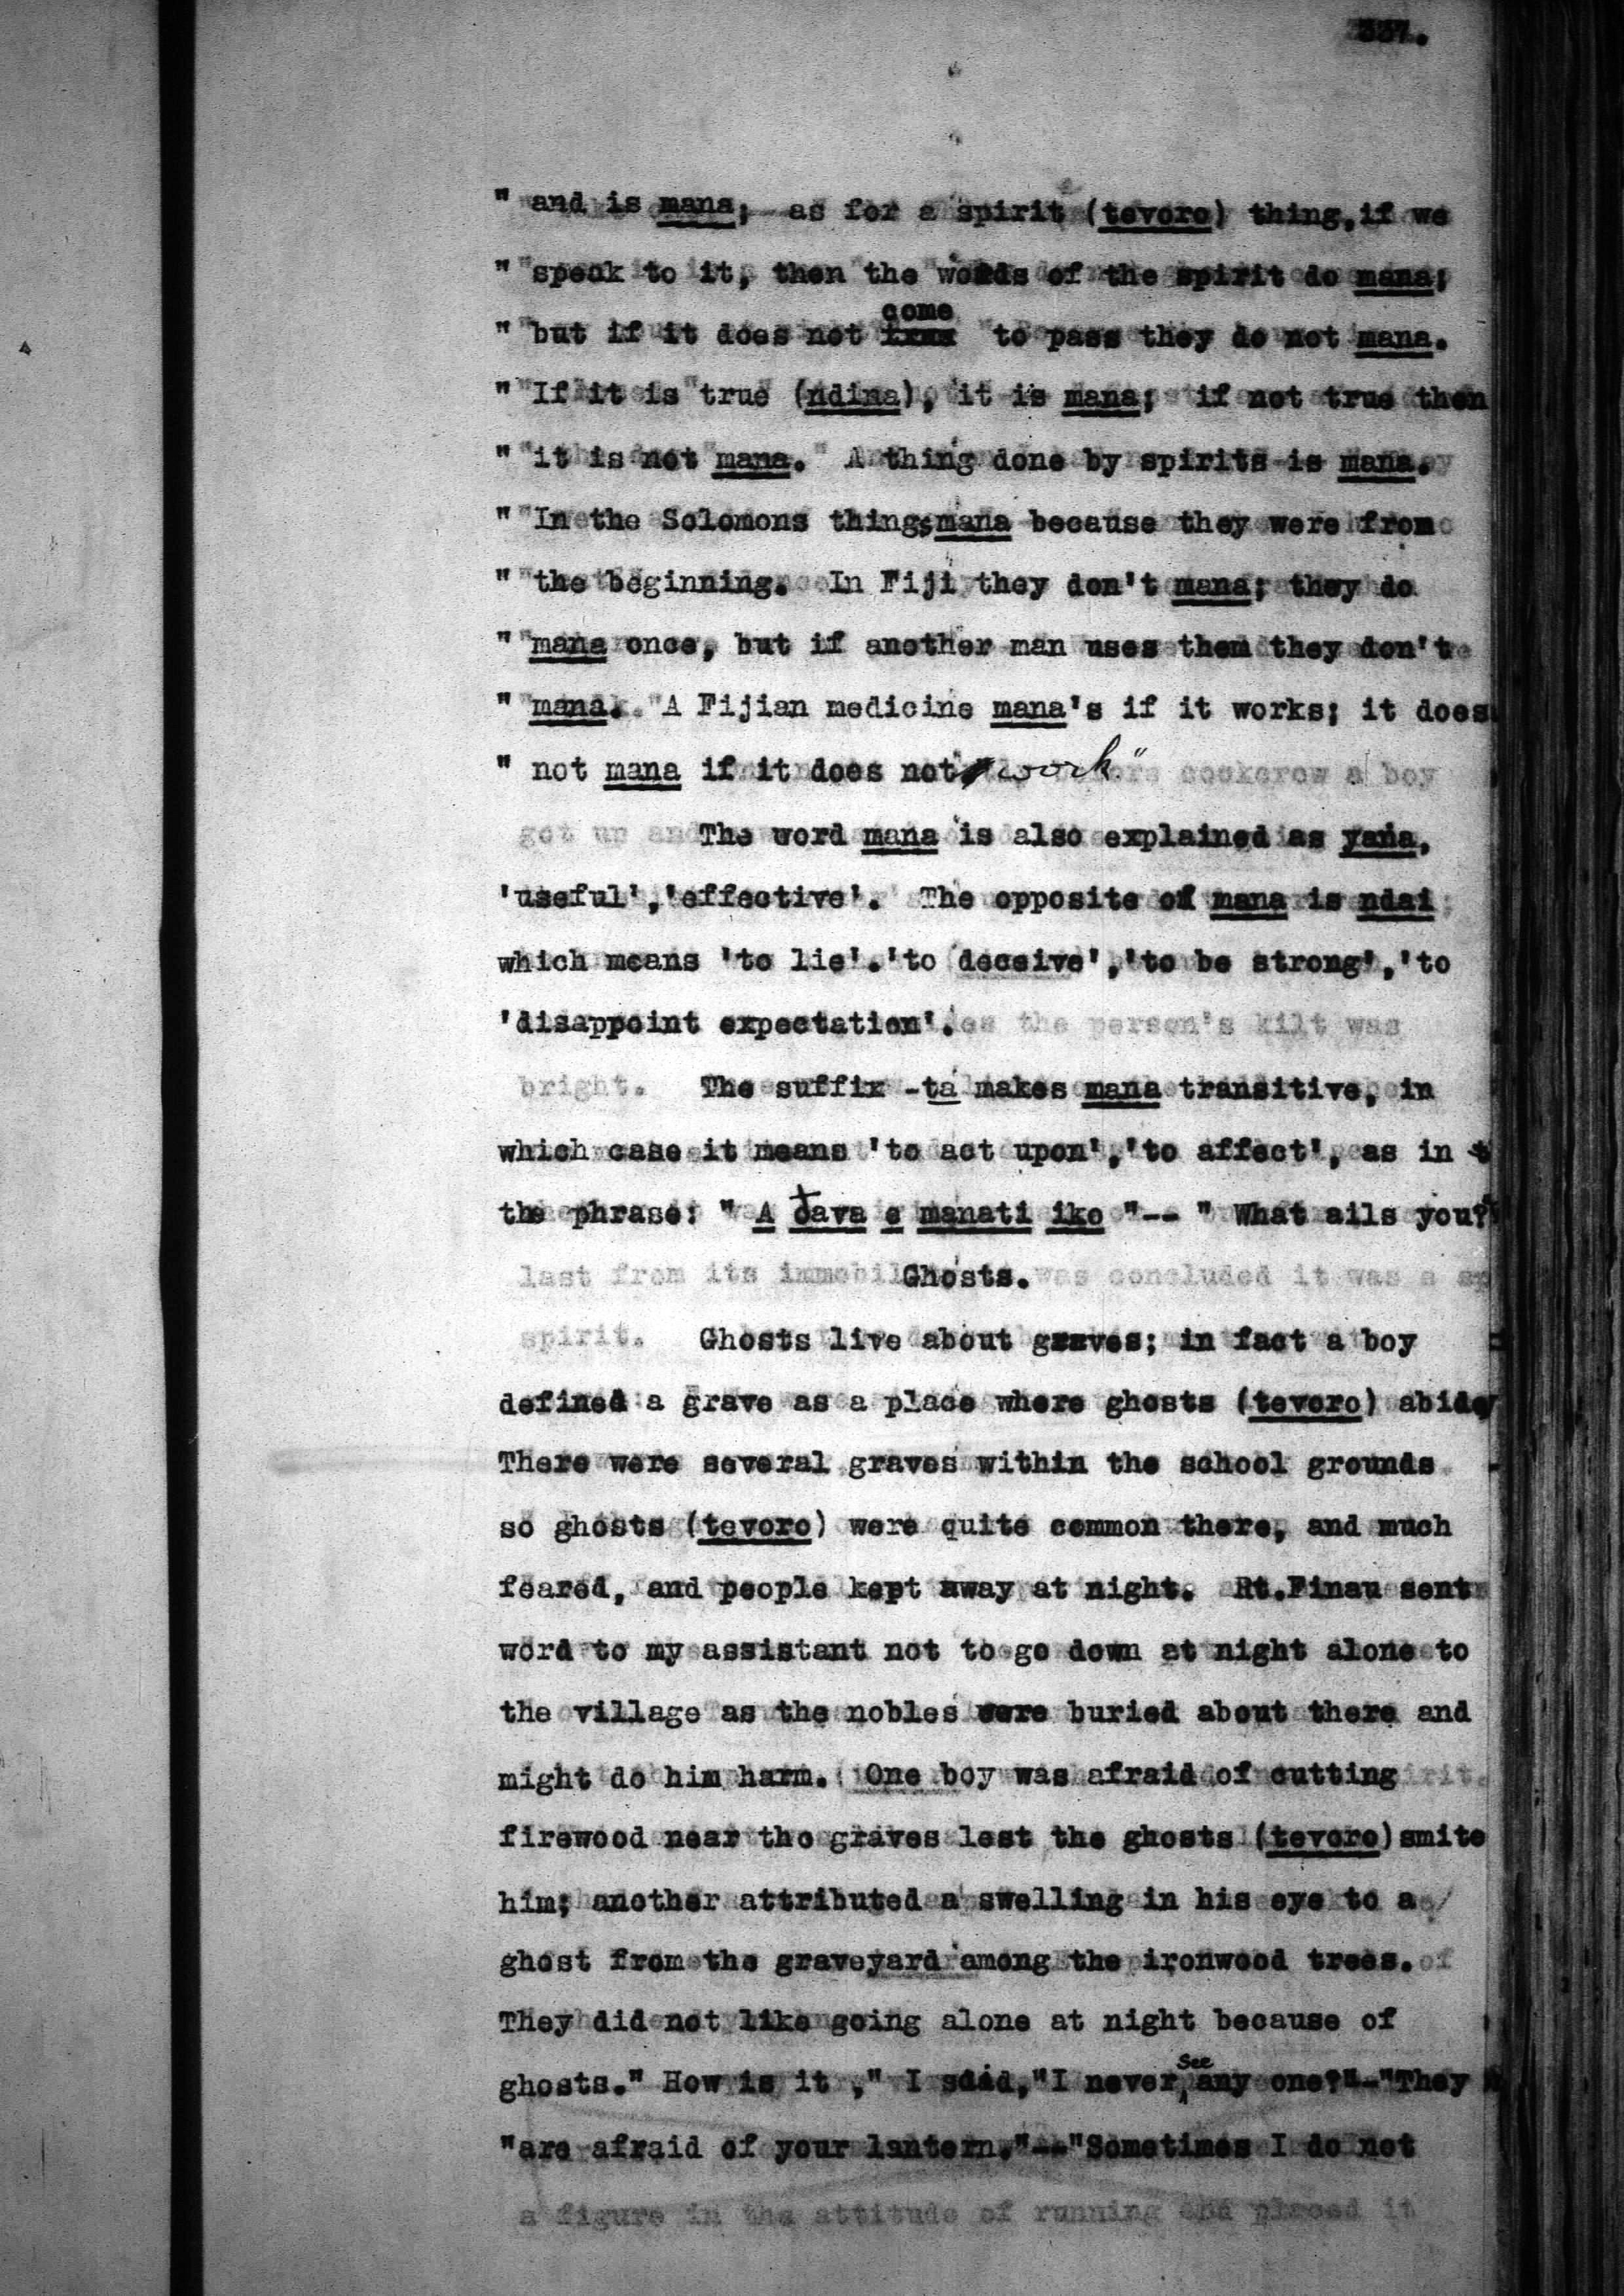 337.
" and is mana; as for a spirit (tevoro) thing, if we
" speak to it, then the words of the spirit do mana;
come
" but if it does not to pass they do not mana.
" If it is true (ndina), it is mana; if not true then
" it is not mana. A thing done by spirits is mana.
" In the Solomons things mana because they were from
" the beginning. In Fiji they don't mana; they do
" mana once, but if another man uses them they don't
" mana. A Fijian medicine mana's if it works; it does
" not mana if it does not work"
The word mana is also explained as yana,
'useful','effective'. The opposite of mana is ndai
which means 'to lie'.'to deceive','to be strong','to
'disappoint expectation'.
The suffix -ta makes mana transitive, in
which case it means 'to act upon','to affect', as in
the phrase: " A cava e manati iko "-- " What ails you?"
Ghosts.
Ghosts live about graves; in fact a boy
defined a grave as a place where ghosts (tevoro) abide
There were several graves within the school grounds
so ghosts (tevoro) were quite common there, and much
feared, and people kept away at night. Rt.Finau sent
word to my assistant not to go down at night alone to
the village as the nobles were buried about there and
might do him harm. One boy was afraid of cutting
firewood near the graves lest the ghosts (tevoro)smite
him; another attributed a swelling in his eye to a
ghost from the graveyard among the ironwood trees.
They did not like going alone at night because of
see
ghosts." How is it ," I said,"I never any one?"-"They
"are afraid of your lantern."--"Sometimes I do not
a figure in the attitude of running and placed it